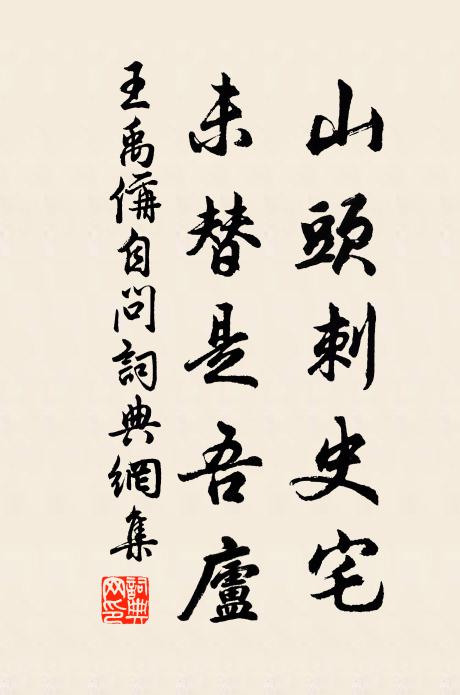 山頭刺史宅
未替是吾廬
王禹偁自問詞典網集
詞典
网印